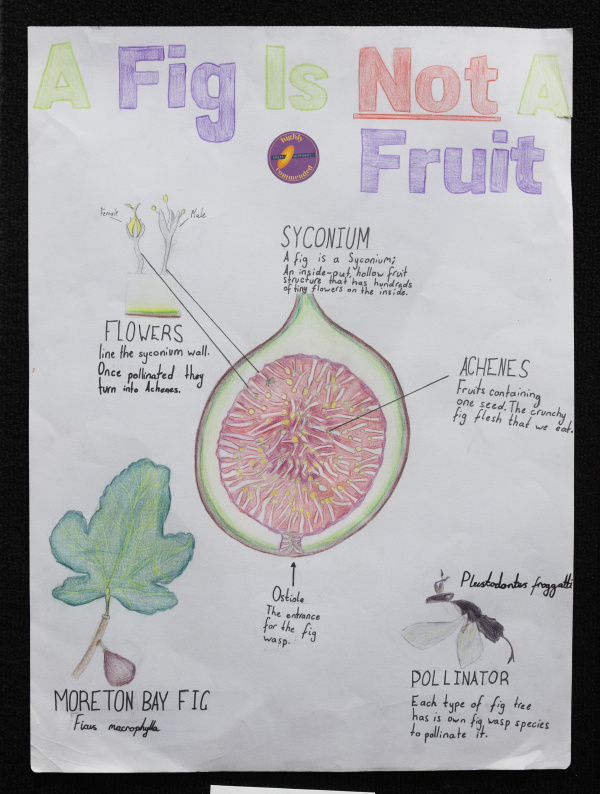 A Fig Is Not A
Fruit
highly
commended
Female
Male
SYCONIUM
A fig is a Syconium;
An inside-out, hollow fruit
structure that has hundreds
of tiny flowers on the inside.
FLOWERS
line the syconium wall.
Once pollinated they
turn into Achenes.
ACHENES
Fruits containing
one seed. The crunchy
fig flesh that we eat.
Ostiole
The entrance
for the fig
wasp.
MORETON BAY FIG
Ficus macrophylla
Pleistodontes froggatti
POLLINATOR
Each type of fig tree
has is own fig wasp species
to pollinate it.